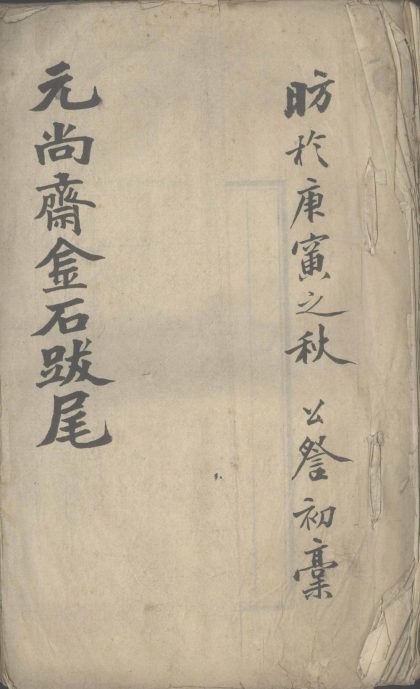 昉於庚寅之秋 公詧初稾
元尚齋金石跋尾